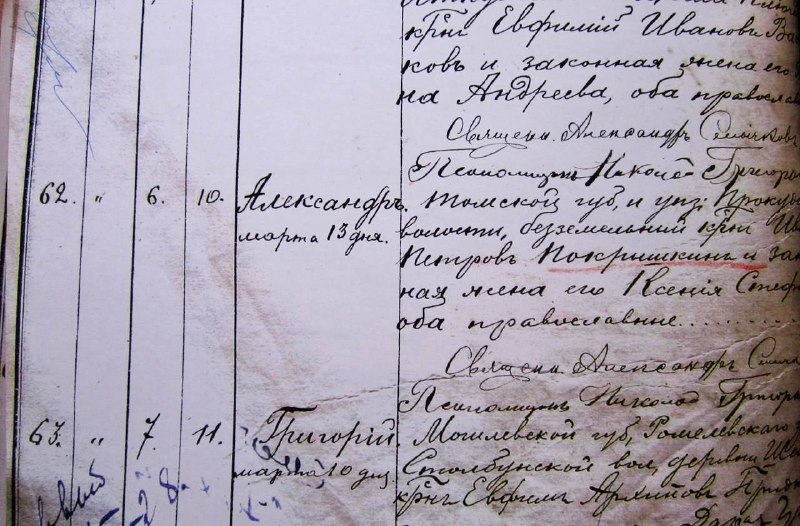 крⷭ҇нъ Евфимій Ивановъ Ва
ковъ и законная жена его
на Андреева, оба православ
Священ. Александръ
Псаломщикъ Николай Григорь
62. " 6. 10. Александръ. Томской губ, и уѣз: Прокуд
марта 13 дня. волости, безземельный кр-нъ Ив
Петровъ Покришкинъ и зак
ная жена его Ксенія Стеф
оба православные.........
Священ. Александръ
Псаломщикъ Николай Григорь
63. " 7. 11. Григорій. Могилевской губ, Гомелевскаго
марта 10 дня. Столбунской вол, деревни
кр-нъ Евфимъ Архиповъ
28.